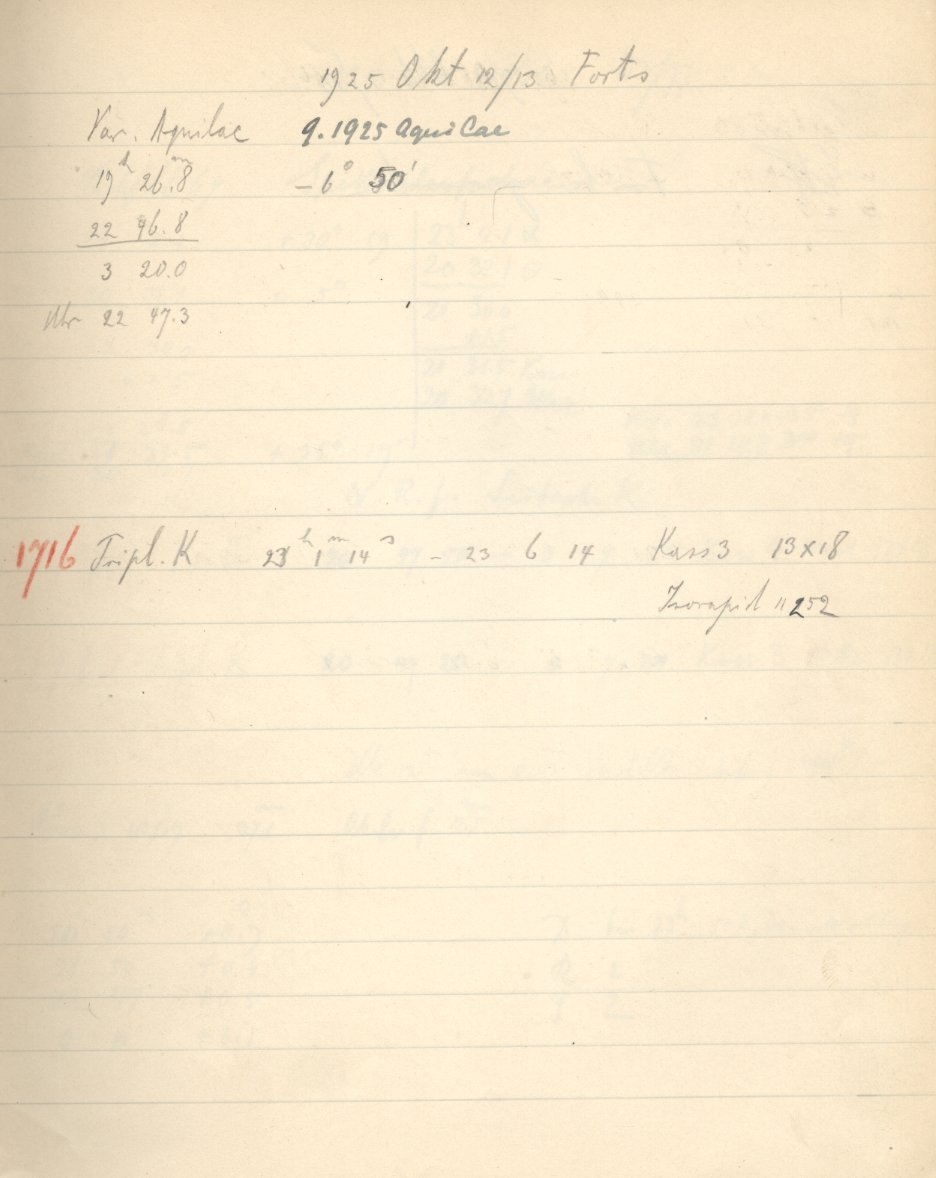 1925 Okt 12/13 Forts
Var. Aquilae 9.1925 Aquilae
19ʰ 26.ᵐ8 – 6° 50'
22 46.8
3 20.0
Uhr 22 47.3
1716 Tripl. K 23ʰ 1ᵐ 14ˢ – 23 6 14 Kass 3 13x18
Isorapid 11252